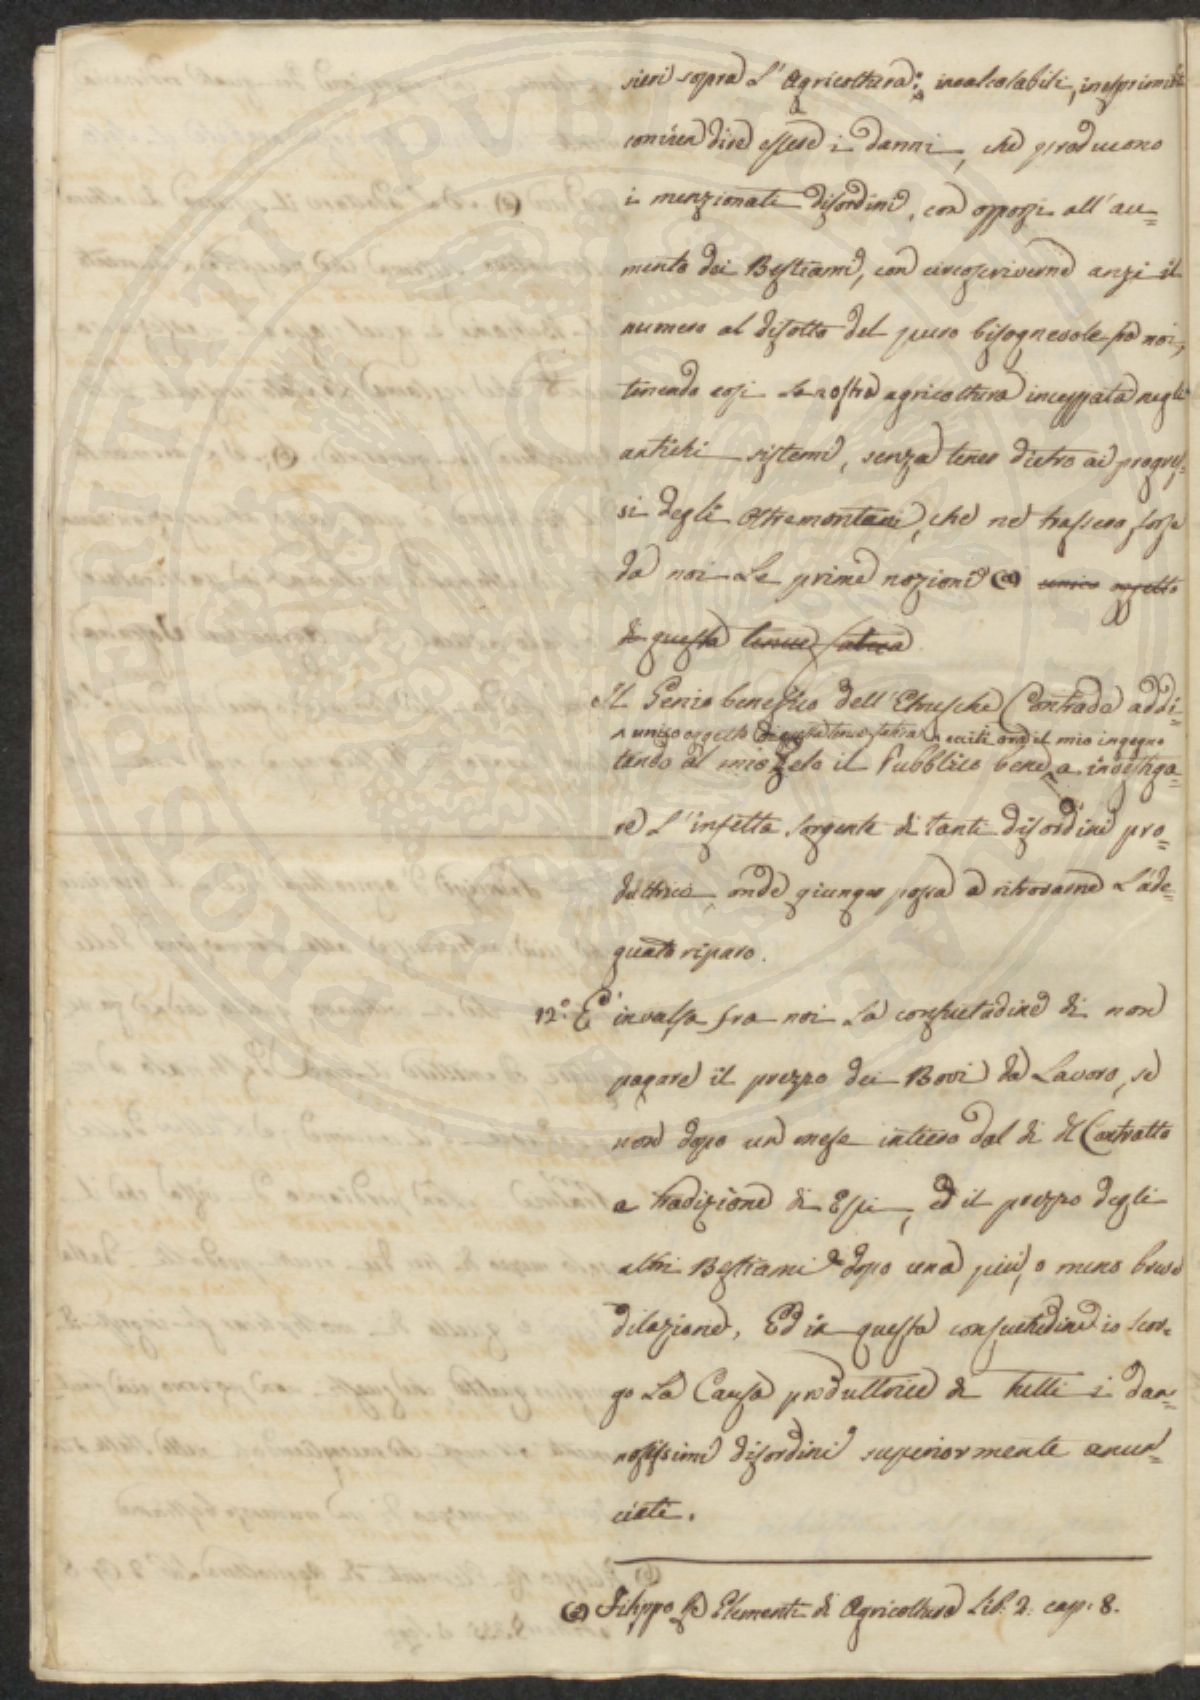 sieri sopra L'Agricoltura; incalcolabili, inesprimibili
convien dire essere i danni, che producono
i menzionati disordini, con opporsi all'au=
mento dei Bestiami, con circoscriverne anzi il
numero al disotto del puro bisognevole frà noi,
tenendo così la nostra agricoltura inceppata negli
antichi sistemi, senza tener dietro ai progres=
si degli Oltremontani, che ne trassero forse
da noi Le prime nozioni (a) unico oggetto
di questa tenue fatica
Il Genio benefico dell'Etrusche Contrade addi=
^ unico oggetto di questa tenue fatica ^ ecciti ora il mio ingegno
tando al mio Zelo il Pubblico bene, a investiga=
re L'infetta sorgente di tanti disordini pro=
duttrice, onde giunger possa a ritrovarne L'ade=
quato riparo.
12.° E' invalsa fra noi La consuetudine di non
pagare il prezzo dei Bovi da Lavoro, se
non dopo un mese intiero dal dì del Contratto
e tradizione di Essi, ed il prezzo degli
altri Bestiami dopo una più, o meno breve
dilazione, Ed in questa consuetudine io scor=
go La Causa produttrice di tutti i dan=
nosissimi disordini superiormente anun=
ciati.
(a) Filippo Re Elementi di Agricoltura Lib: 2: cap: 8.
PUBLI
PROSPERITATI